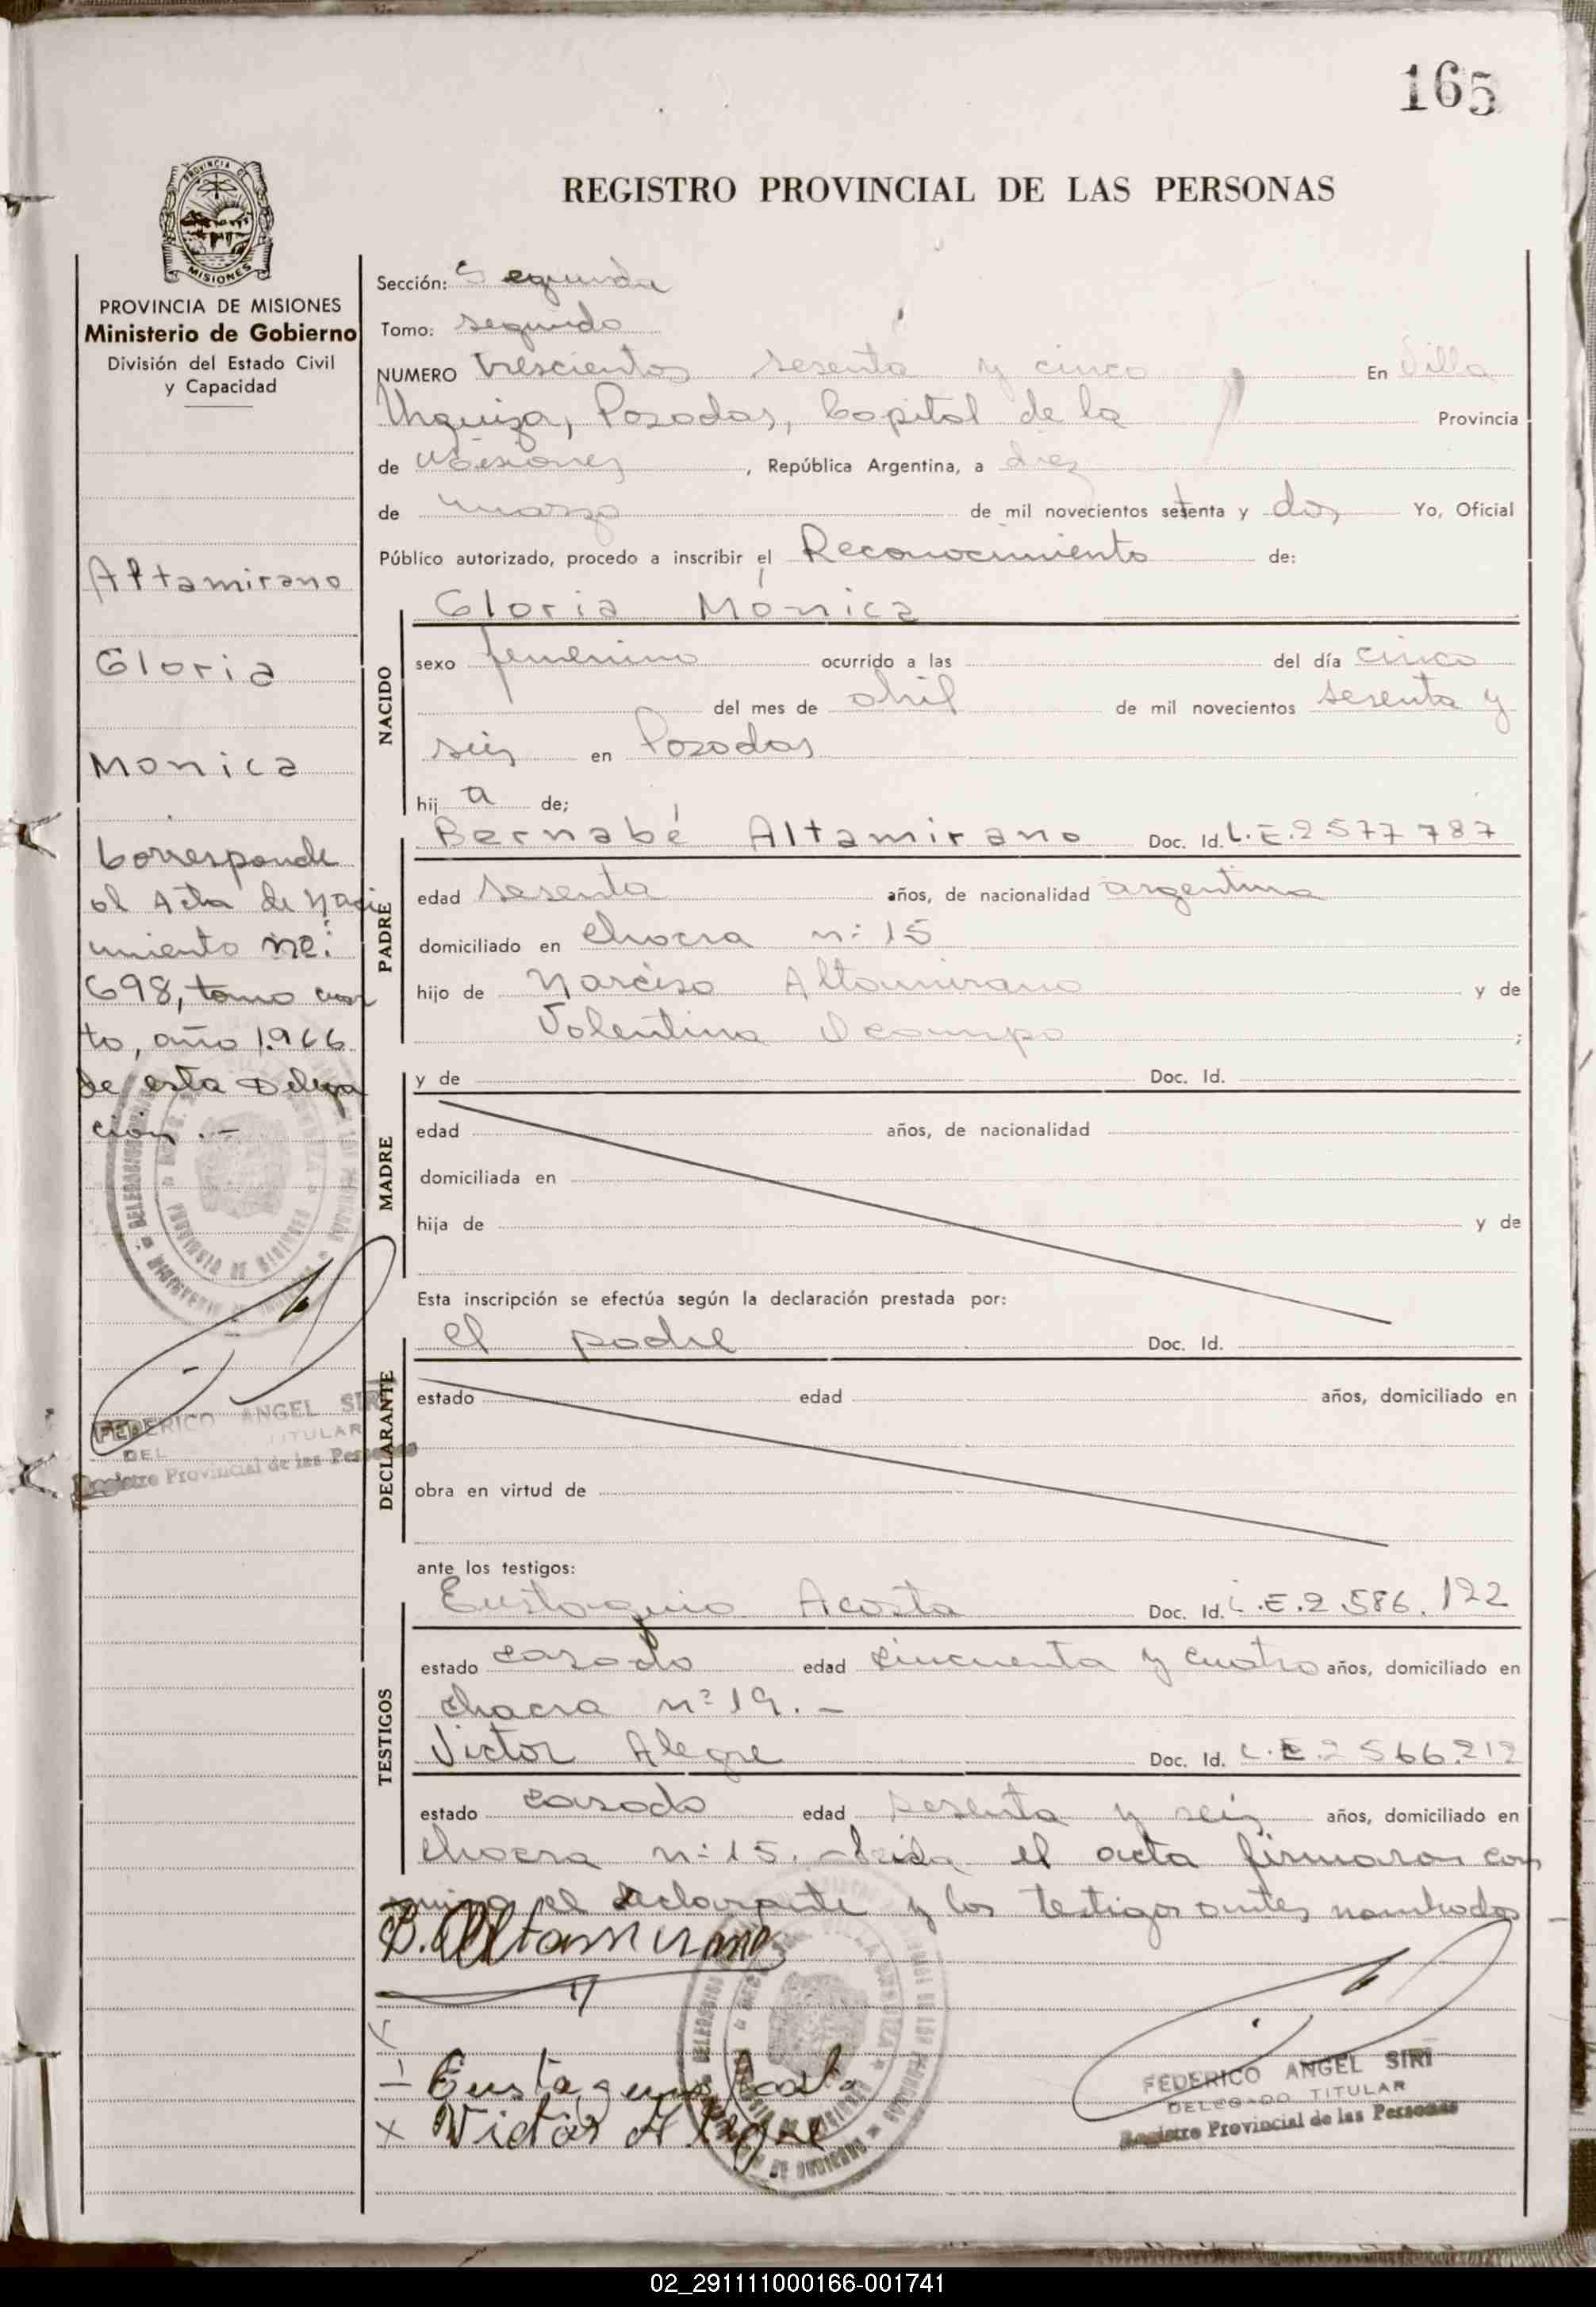 165
PROVINCIA DE
MISIONES
REGISTRO PROVINCIAL DE LAS PERSONAS
PROVINCIA DE MISIONES
Ministerio de Gobierno
División del Estado Civil
y Capacidad
Altamirano
Gloria
Monica
Corresponde
al Acta de naci
miento nº:
698, tomo cuar
to, año 1.966
de esta Delega
ción.-
FEDERICO ANGEL SIRI
DEL TITULAR
Registro Provincial de las Personas
Sección: Segunda
Tomo: segundo
NUMERO trescientos sesenta y cinco En Villa
Urquiza, Posadas, Capital de la Provincia
de Misiones, República Argentina, a diez
de marzo de mil novecientos setenta y dos Yo, Oficial
Público autorizado, procedo a inscribir el Reconocimiento de:
NACIDO
Gloria Mónica
sexo femenino ocurrido a las del día cinco
del mes de abril de mil novecientos sesenta y
seis en Posadas
hij a de;
PADRE
Bernabé Altamirano Doc. Id. L.E.2.577 787
edad sesenta años, de nacionalidad argentina
domiciliado en chacra n: 15
hijo de Narciso Altamirano y de
Valentina Ocampo ;
MADRE
y de Doc. Id.
edad años, de nacionalidad
domiciliada en
hija de y de
Esta inscripción se efectúa según la declaración prestada por:
DECLARANTE
el padre Doc. Id.
estado edad años, domiciliado en
obra en virtud de
ante los testigos:
TESTIGOS
Eustaquio Acosta Doc. Id. L.E.2.586.122
estado casado edad cincuenta y cuatro años, domiciliado en
chacra nº 19.-
Victor Alegre Doc. Id. L.E.2 566.212
estado casado edad sesenta y seis años, domiciliado en
chacra n: 15.-Leida el acta firmaron con
migo el declarante y los testigos antes nombrados
B. Altamirano
Eustaquio Acosta
x Victor Alegre
FEDERICO ANGEL SIRI
DELEGADO TITULAR
Registro Provincial de las Personas
02_291111000166-001741